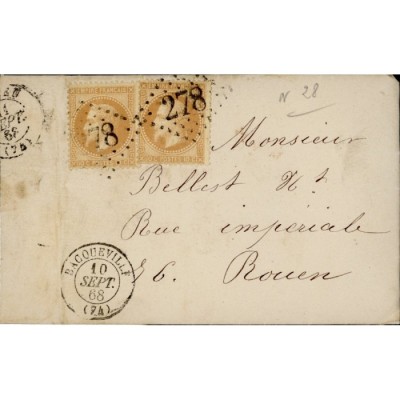 N 28
EMPIRE FRANÇAIS
78
278
SEPT.
68
(74)
Monsieur
Bellest Nt
Rue impériale
26. Rouen
BACQUEVILLE
10
SEPT.
68
(74)